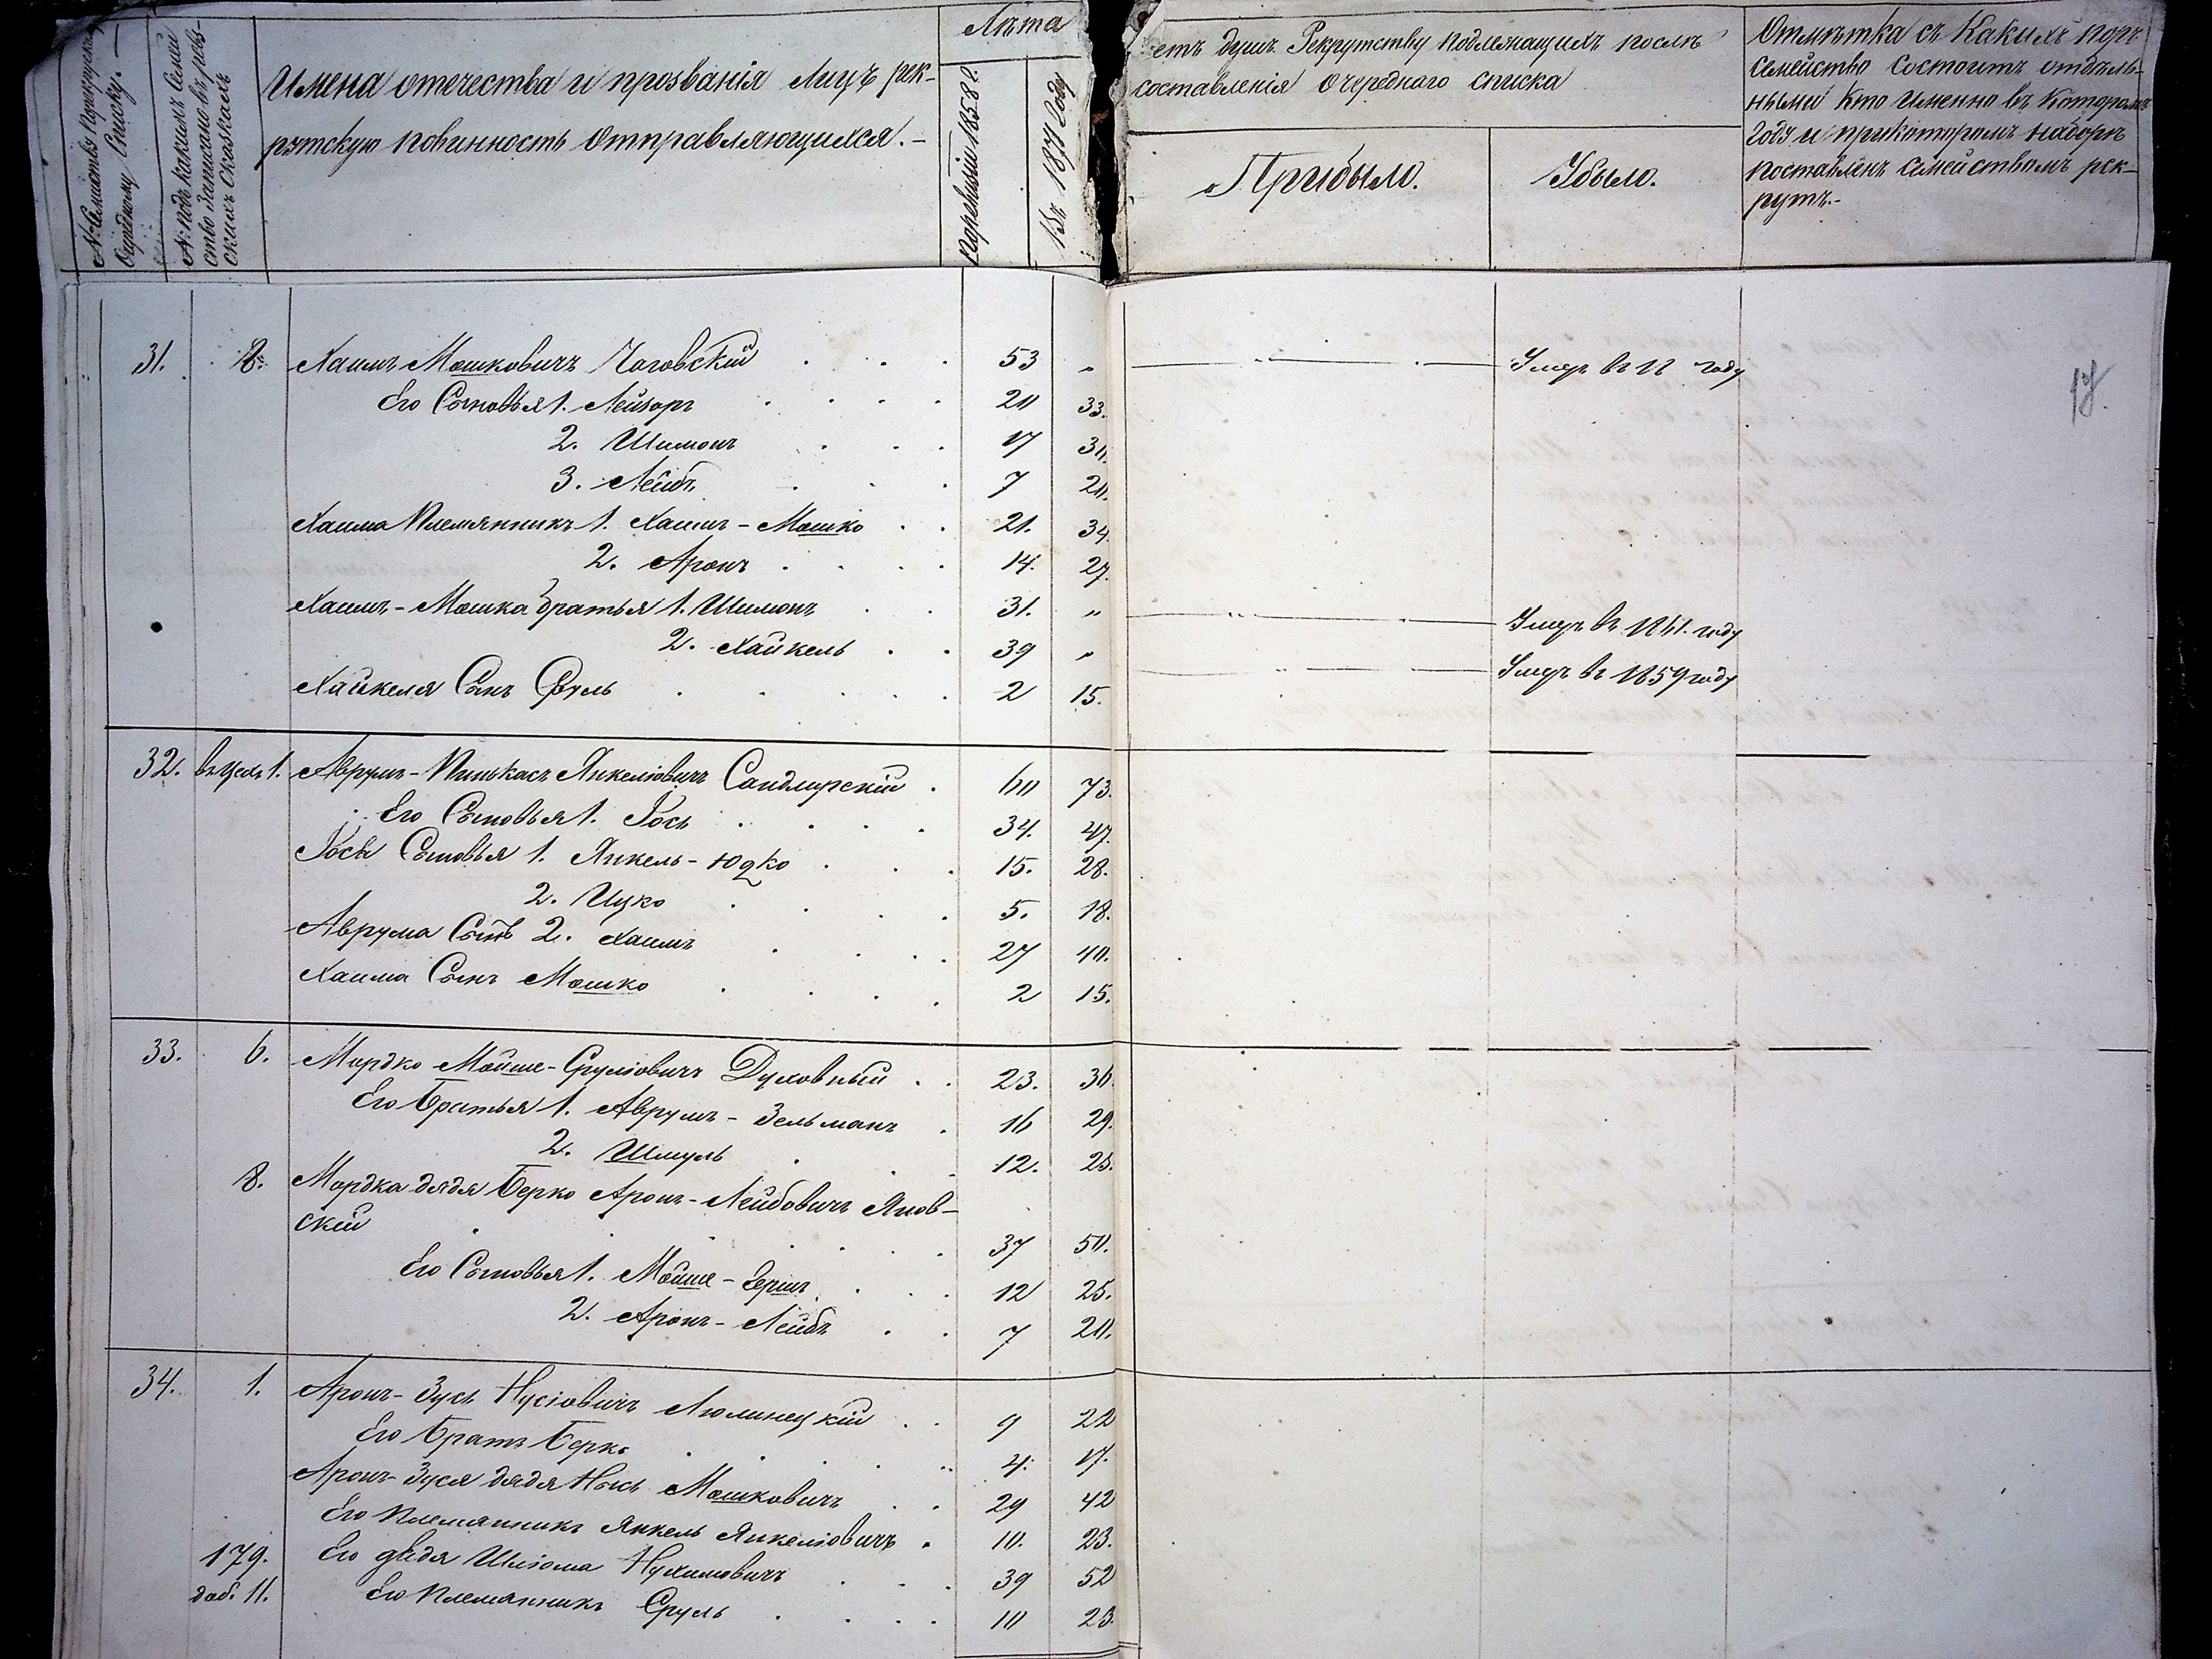 № Семейства Порекрутскому Очередному Списку. —
№ подъ какимъ Семейство записано въ ревизскихъ Сказкахъ
Имена отечества и прозванія Лицъ рек-
рутскую повинность отправляющихся. —
Лѣта
Поревизіи 1858 г.
Въ 1871 Году
етъ душъ Рекрутству подлежащихъ послѣ
составленія очереднаго списка
Прибыло.
Убыло.
Отмѣтка съ Какихъ
Семейство Состоитъ отдѣль-
ными Кто Именно въ Которомъ
Году и прикоторомъ наборѣ
поставленъ Семействомъ рек-
рутъ.-
31. 8. Хаимъ Мошковичъ Чаговскій 53 " Умеръ въ году
Его Сыновья 1. Лейзоръ 20 33.
2. Шимонъ 17 30.
3. Лейбъ 7 20.
Хаима Племянникъ 1. Хаимъ-Мошко 21. 34.
2. Аронъ 14. 27.
Хаимъ-Мошка братья 1. Шимонъ 31. " Умеръ въ 1861. году
2. Хайкель 39 " Умеръ въ 1859 году
Хайкеля Сынъ Сруль 2 15.
32. 1. Аврумъ-Пинькасъ Янкеліовичъ Сандлирскій 60 73.
Его Сыновья 1. Іось 34. 47.
Іося Сыновья 1. Янкель-Юдко 15. 28.
2. Ицко 5. 18.
Аврума Сынъ 2. Хаимъ 27 40.
Хаима Сынъ Мошко 2 15.
33. 6. Мордко Мойше-Сруліовичъ Духовный 23. 36
Его Братья 1. Аврумъ-Зельманъ 16 29.
2. Шмуль 12. 25.
8. Мордка дядя Берко Аронъ-Лейбовичъ Янов-
скій 37 50.
Его Сыновья 1. Мойше-Гершъ 12 25.
2. Аронъ-Лейбъ 7 20.
34. 1. Аронъ-Зусь Нусіовичъ Люлинецкій 9 22
Его Братъ Берко 4. 17.
Аронъ-Зуся дядя Нысь Мошковичъ 29 42
Его Племянникъ Янкель Янкеліовичъ 10. 23.
179. Его дядя Шліома Нухимовичъ 39 52
доб. 11. Его Племянникъ Сруль 10 23.
17.